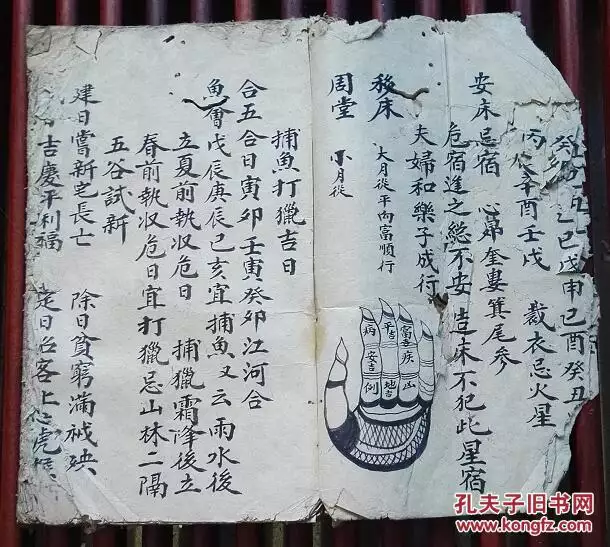 乙巳戊申己酉癸丑
丙辰辛酉壬戌 裁衣忌火星
安床忌宿 心昴奎婁箕尾參
危宿逢之總不安造床不犯此星宿
夫婦和樂子成行
移床 大月從平向富順行
周堂 小月從
富吉 疾凶
平吉 地吉
病 安吉 例
捕魚打獵吉日
合五合日寅卯壬寅癸卯江河合
魚會戊辰庚辰己亥宜捕魚又云雨水後
立夏前執収危日 捕獵霜降後立
春前執収危日宜打獵忌山林二隔
五谷試新
建日嘗新宅長亡 除日貧窮滿禍殃
吉慶平利福 定日台客上
孔夫子旧书网
www.kongfz.com